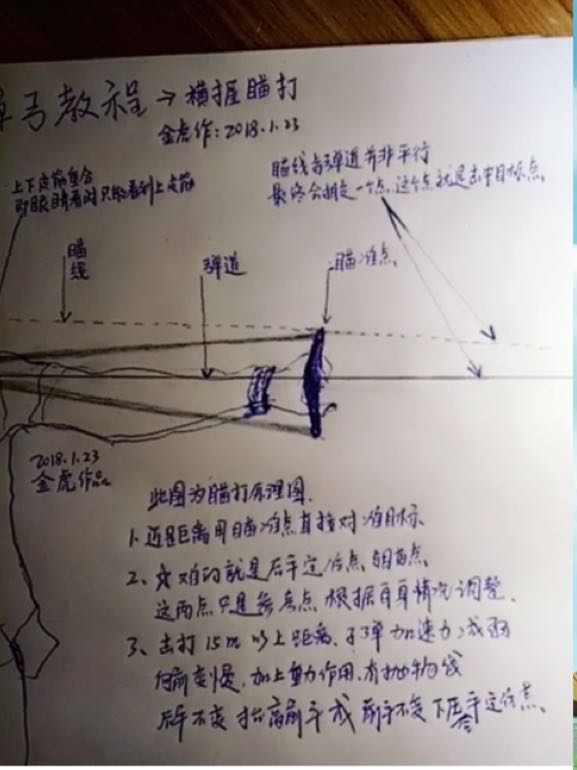 弓教程→横握瞄打
金虎作:2018.1.23
上下皮筋重合
即眼睛看时只能看到上皮筋
瞄线与弹道并非平行
最终会相交一个点,这个点就是击中目标点.
瞄
线
弹道
瞄准点.
2018.1.23
金虎作品
此图为瞄打原理图.
1.近距离用瞄准点直接对准目标.
2、难的就是后手定位点、
这两点只是参考点 根据自身情况调整.
3、击打15m以上距离、子弹加速力减弱
向前变慢,加上重力作用.有抛物线
后手不变 抬高前手或前手不变下压后手定位点、